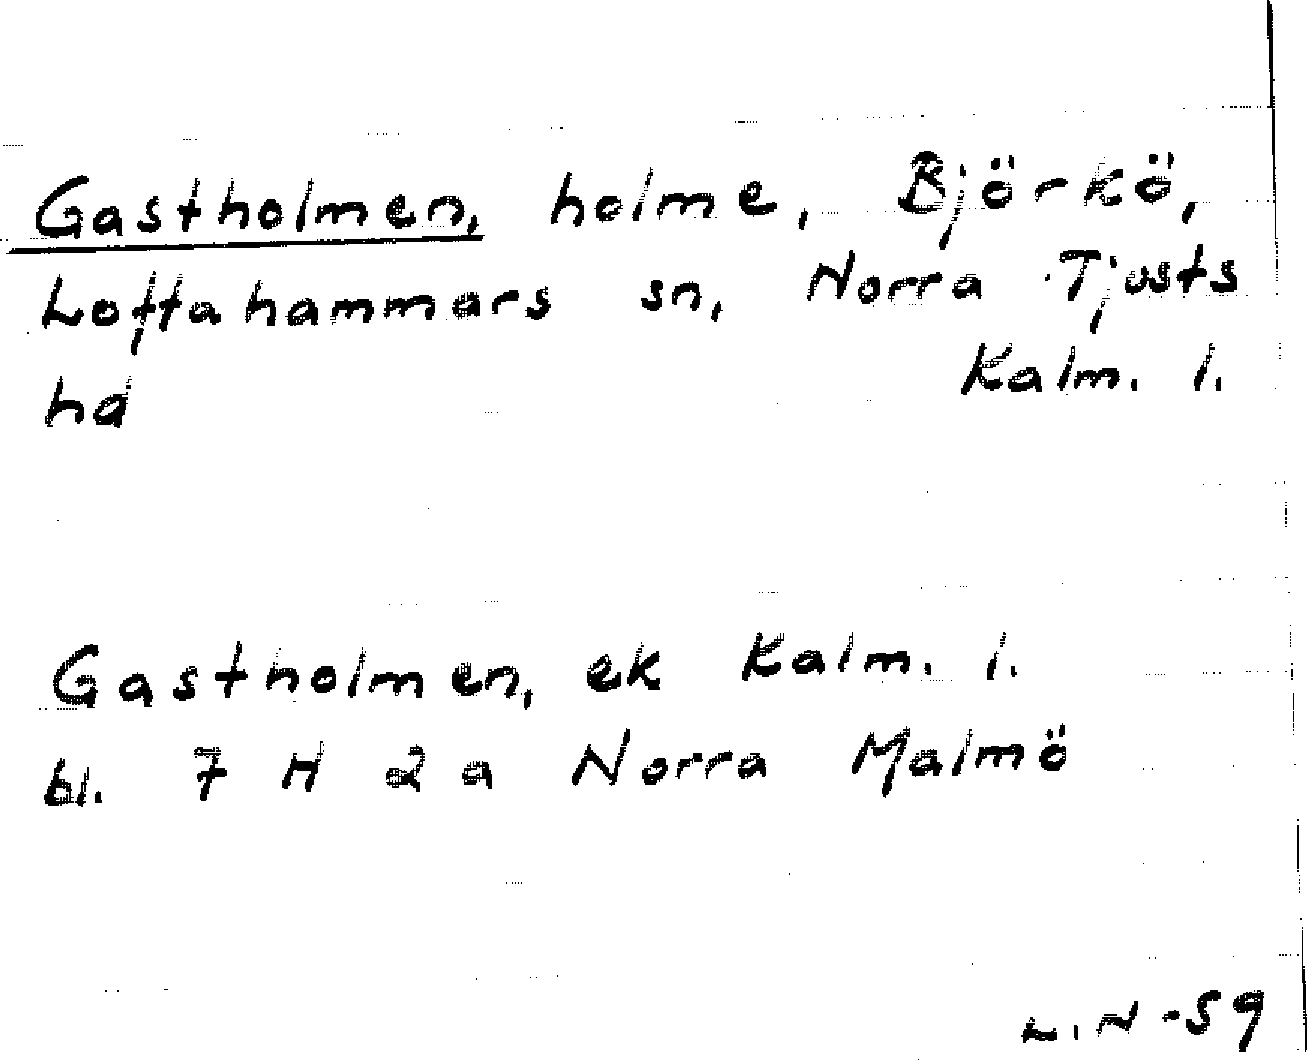 Gastholmen, holme, Björkö,
Loftahammars sn, Norra Tjusts
hd Kalm. l.
Gastholmen, ek Kalm. l.
bl. 7 H 2 a Norra Malmö
L. N -59